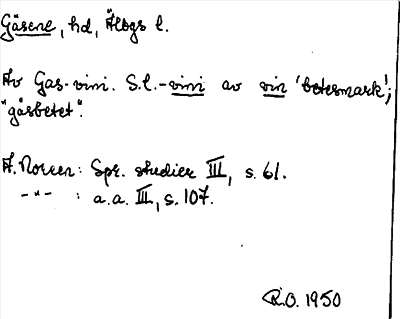 Gäsene, hd, Älvsbgs l.
Av Gas-vini. S.l. -vini av vin 'betesmark';
"gåsbetet".
A. Noreen: Spr. studier III, s. 61.
-"- : a.a. III, s. 107.
R.O. 1950